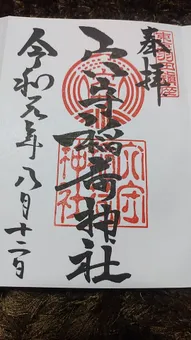 奉拝
穴守稲荷神社
穴守
稲荷
神社
令和元年八月十二日